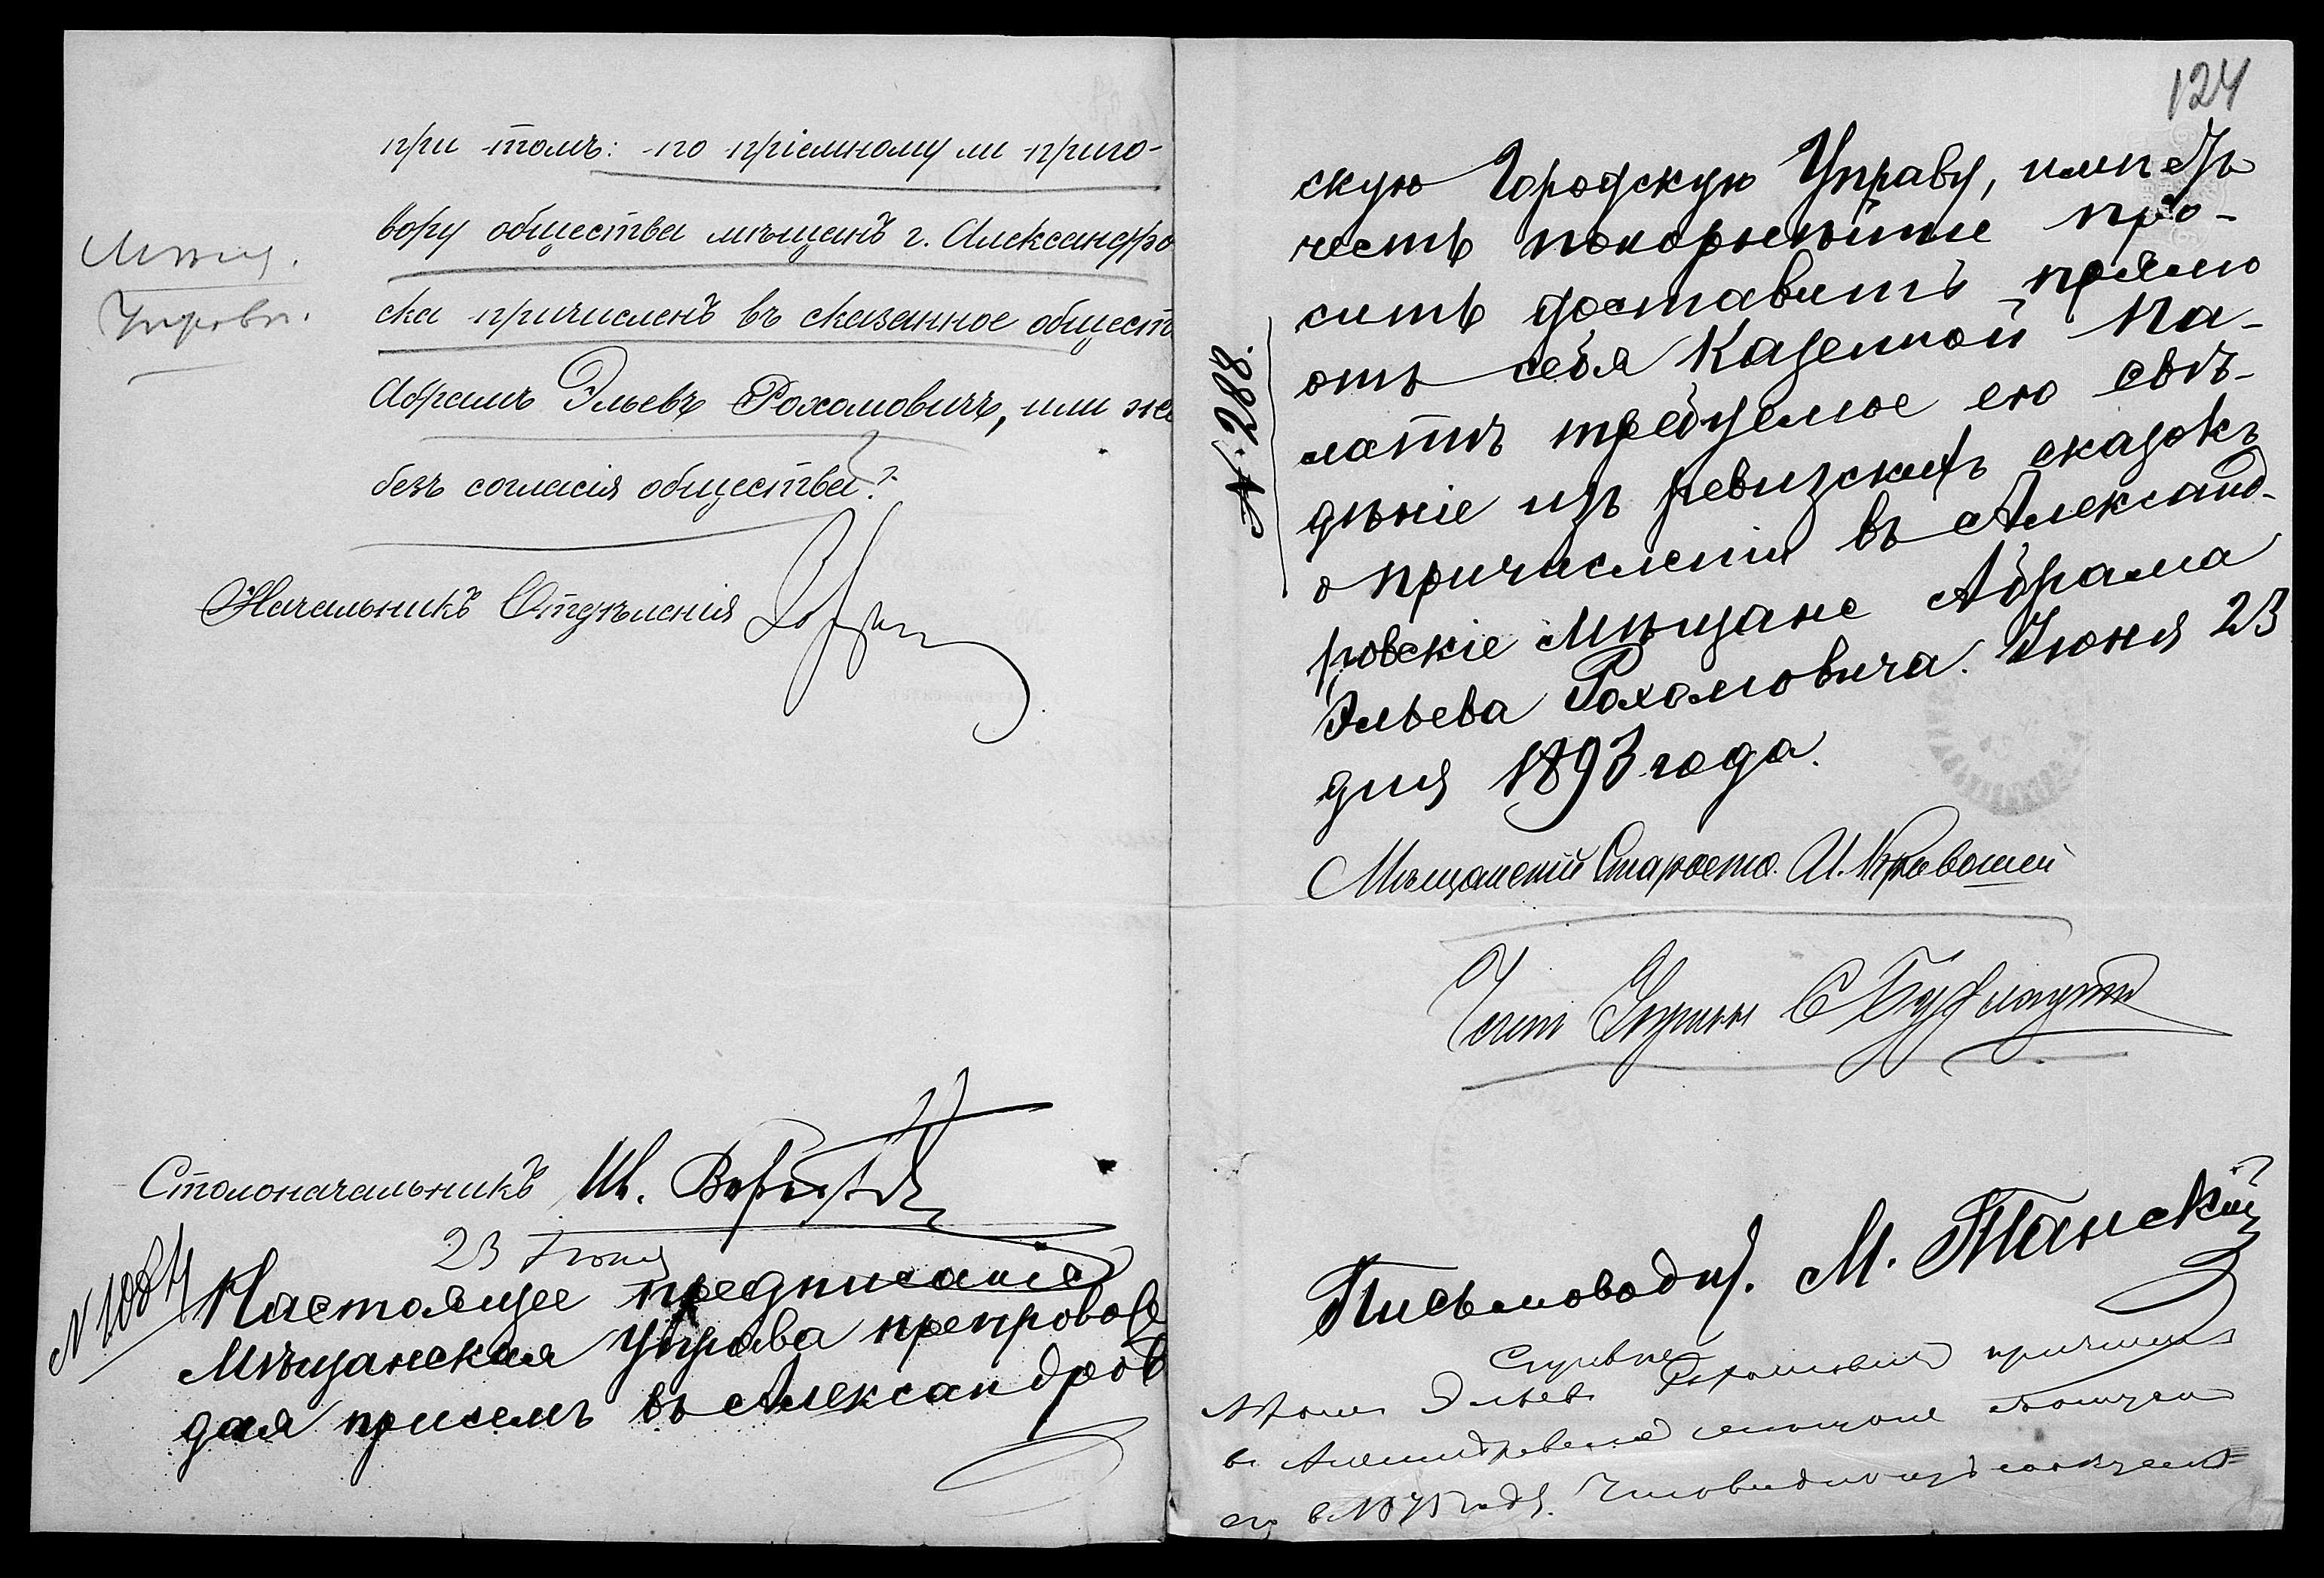 при томъ: по пріемному ли приго-
вору общества мѣщанъ г. Александро
ска причисленъ въ сказанное общест
Абрамъ Эльевъ Рохомовичъ, или же
безъ согласія общества?
Мѣщ.
Управы.
Начальникъ Отдѣленія
Столоначальникъ Ив.
23 Іюня
Настоящее предписаніе
Мѣщанская Управа препровож
дая при семъ въ Александров
124
скую Городскую Управу, имѣетъ
честь покорнѣйше про-
сить доставить прямо
отъ себя Казенной Па-
латѣ требуемое ею свѣ-
дѣніе изъ ревизскихъ сказокъ
о причисленіи въ Александ-
ровскіе Мѣщане Абрама
Эльева Рохомовича. Іюня 23
дня 1893 года.
№ 288.
Мѣщанскій Староста И. Кривошей
Член Управы С
Письмовод. М. Танскій
Справка
Эльевъ Рохомовичъ причислен
в Александровские мещане
его в 1875 году.